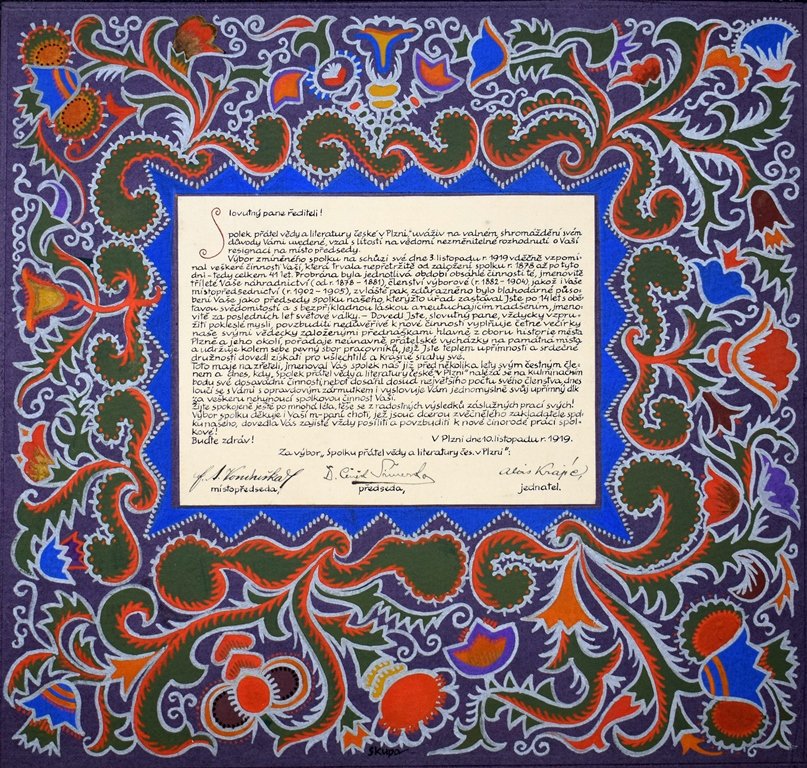 Slovutný pane řediteli!
Spolek přátel vědy a literatury české v Plzni, uváživ na valném shromáždění svém
důvody Vámi uvedené, vzal s lítostí na vědomí nezměnitelné rozhodnutí o Vaší
resignaci na místo předsedy.
Výbor zmíněného spolku na schůzi své dne 3. listopadu r. 1919 vděčně vzpomí-
nal veškeré činnosti Vaší, která trvala nepřetržitě od založení spolku r. 1878 až po tyto
dni - tedy celkem 41 let. Probrána byla jednotlivá období obsáhlé činnosti té, jmenovitě
tříleté Vaše náhradnictví (od r. 1878 - 1881), členství výborové (r. 1882 - 1904) jakož i Vaše
místopředsednictví (r. 1902 - 1905), zvláště pak zdůrazněno bylo blahodárné půso-
bení Vaše jako předsedy spolku našeho, kterýžto úřad zastával Jste po 14 let s obě-
tavou svědomitostí a s bezpříkladnou láskou a neutuchajícím nadšením, jmeno-
vitě za posledních let světové války. - Dovedl Jste, slovutný pane, vždycky vzpru-
žiti pokleslé mysli, povzbuditi nedůvěřivé k nové činnosti vyplňuje četné večírky
naše svými vědecky založenými přednáškami hlavně z oboru historie města
Plzně a jeho okolí, pořádaje neúnavně přátelské vycházky na památná místa
a udržuje kolem sebe pevný sbor pracovníků, jejž Jste teplem upřímnosti a srdečné
družnosti dovedl získati pro ušlechtilé a krásné snahy své.
Toto maje na zřeteli, jmenoval Vás spolek náš již před několika lety svým čestným čle-
nem a dnes, kdy „Spolek přátel vědy a literatury české v Plzni" nalézá se na kulminačním
bodu své dosavadní činnosti, neboť dosáhl dosud největšího počtu svého členstva, dnes
loučí se s Vámi s opravdovým zármutkem i vyslovuje Vám jednomyslně svůj upřímný dík
za veškeru nehynoucí spolkovou činnost Vaši.
Žijte spokojeně ještě po mnohá léta, těše se z radostných výsledků záslužných prací svých!
Výbor spolku děkuje i Vaší m. paní choti, jež jsouc dcerou zvěčnělého zakladatele spol-
ku našeho, dovedla Vás zajisté vždy posíliti a povzbuditi k nové činorodé práci spol-
kové!
Buďte zdráv! V Plzni dne 10. listopadu r. 1919.
Za výbor „Spolku přátel vědy a literatury čes. v Plzni".
místopředseda, předseda, jednatel.
SKUPA